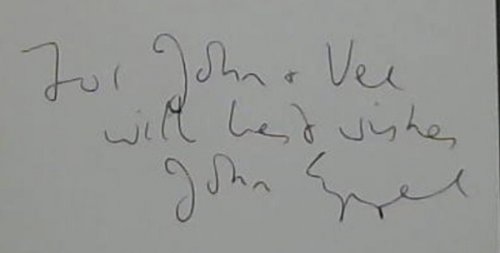 For John + Vee
with best wishes
John Eppel